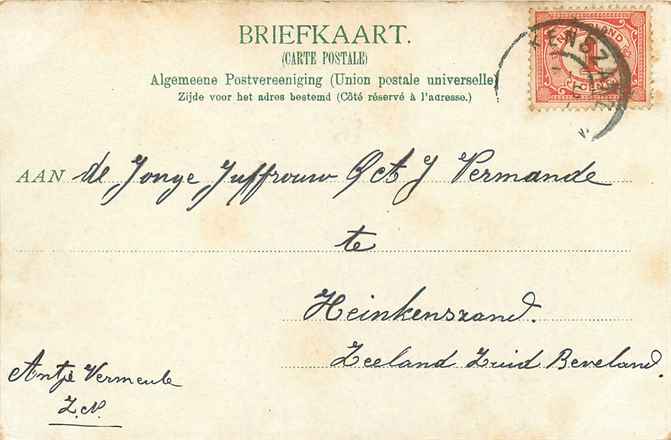 BRIEFKAART.
(CARTE POSTALE)
Algemeene Postvereeniging (Union postale universelle)
Zijde voor het adres bestemd (Côté réservé à l'adresse.)
NEDERLAND
1
AAN de Jonge Juffrouw G A J Vermande
te
Heinkenszand.
Zeeland Zuid Beveland.
Antje Vermeule
Z.N.